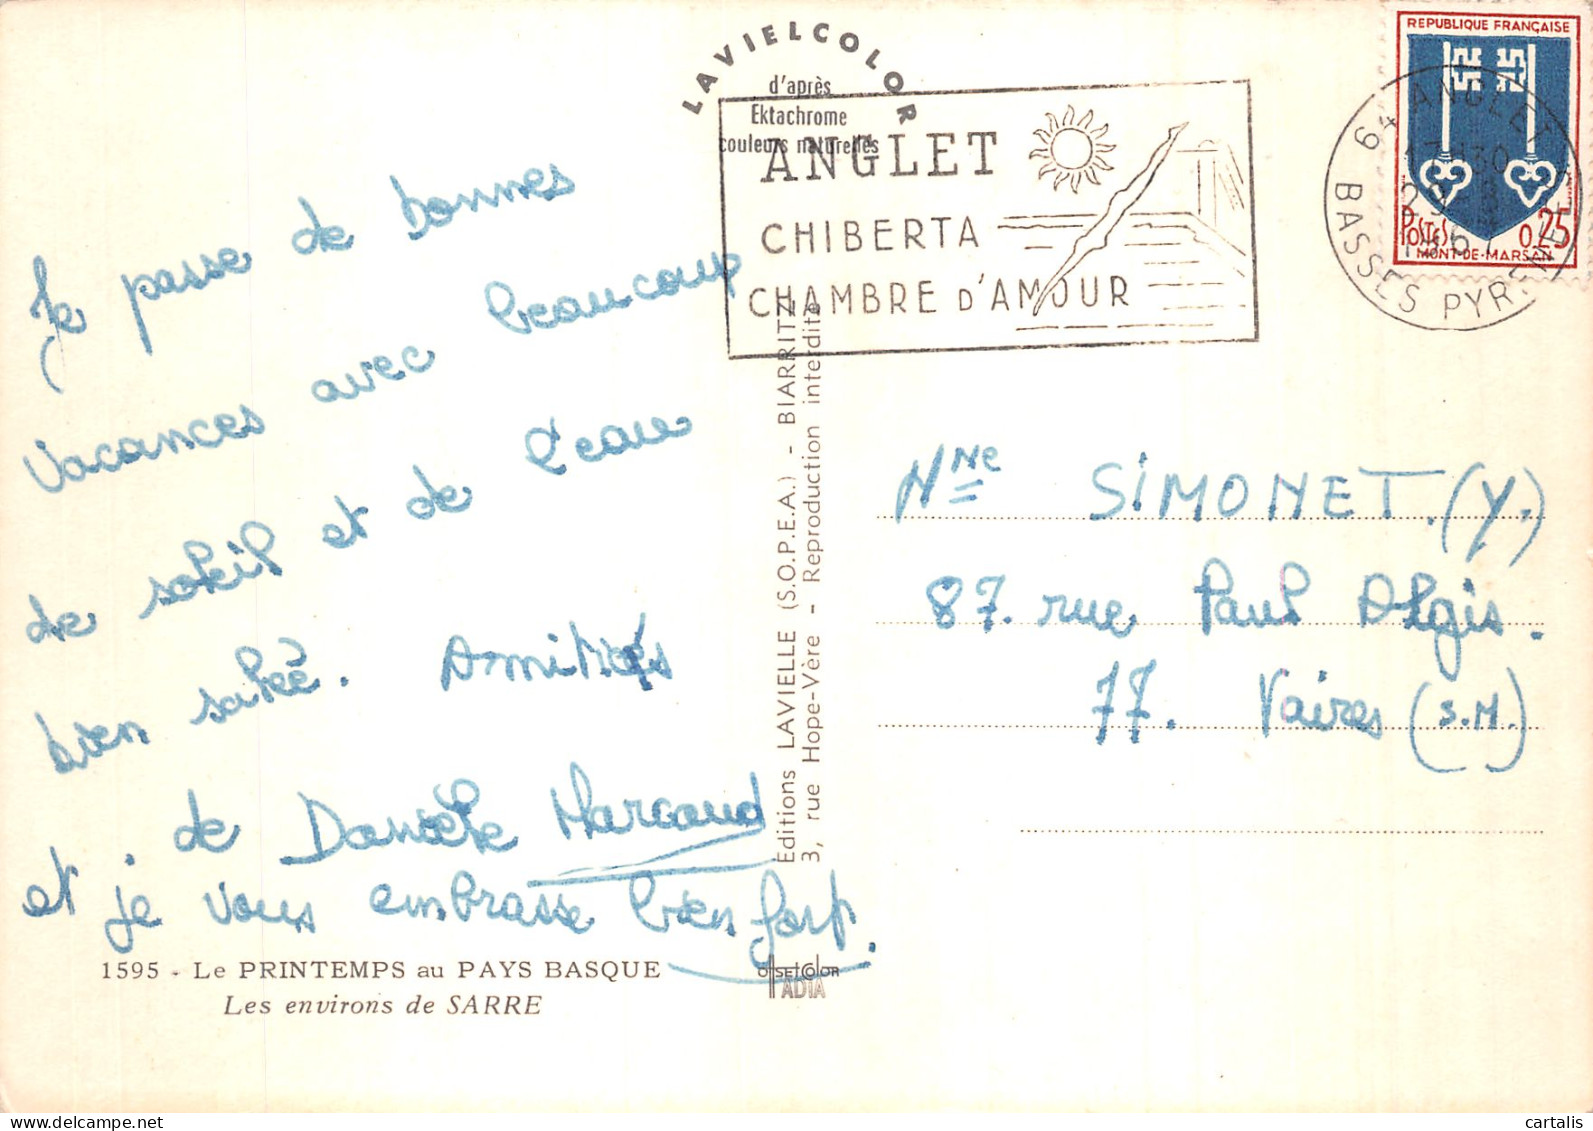 LAVIELCOLOR
d'après
Ektachrome
couleurs naturelles
ANGLET
CHIBERTA
CHAMBRE D'AMOUR
REPUBLIQUE FRANÇAISE
POSTES
0,25
MONT-DE-MARSAN
64 ANGLET
BASSES PYRENEES
Je passe de bonnes
vacances avec beaucoup
de soleil et de l'eau
bien salée. Amitiés
de Danièle Marcaud
et je vous embrasse bien fort.
1595 - Le PRINTEMPS au PAYS BASQUE
Les environs de SARRE
Editions LAVIELLE (S.O.P.E.A.) - BIARRITZ
3, rue Hope-Vère - Reproduction interdite
OFFSETCOLOR
ADIA
SIMONET. (Y.)
87. rue Paul Algis.
77. Vaires (S.M.)
cartalis
www.delcampe.net